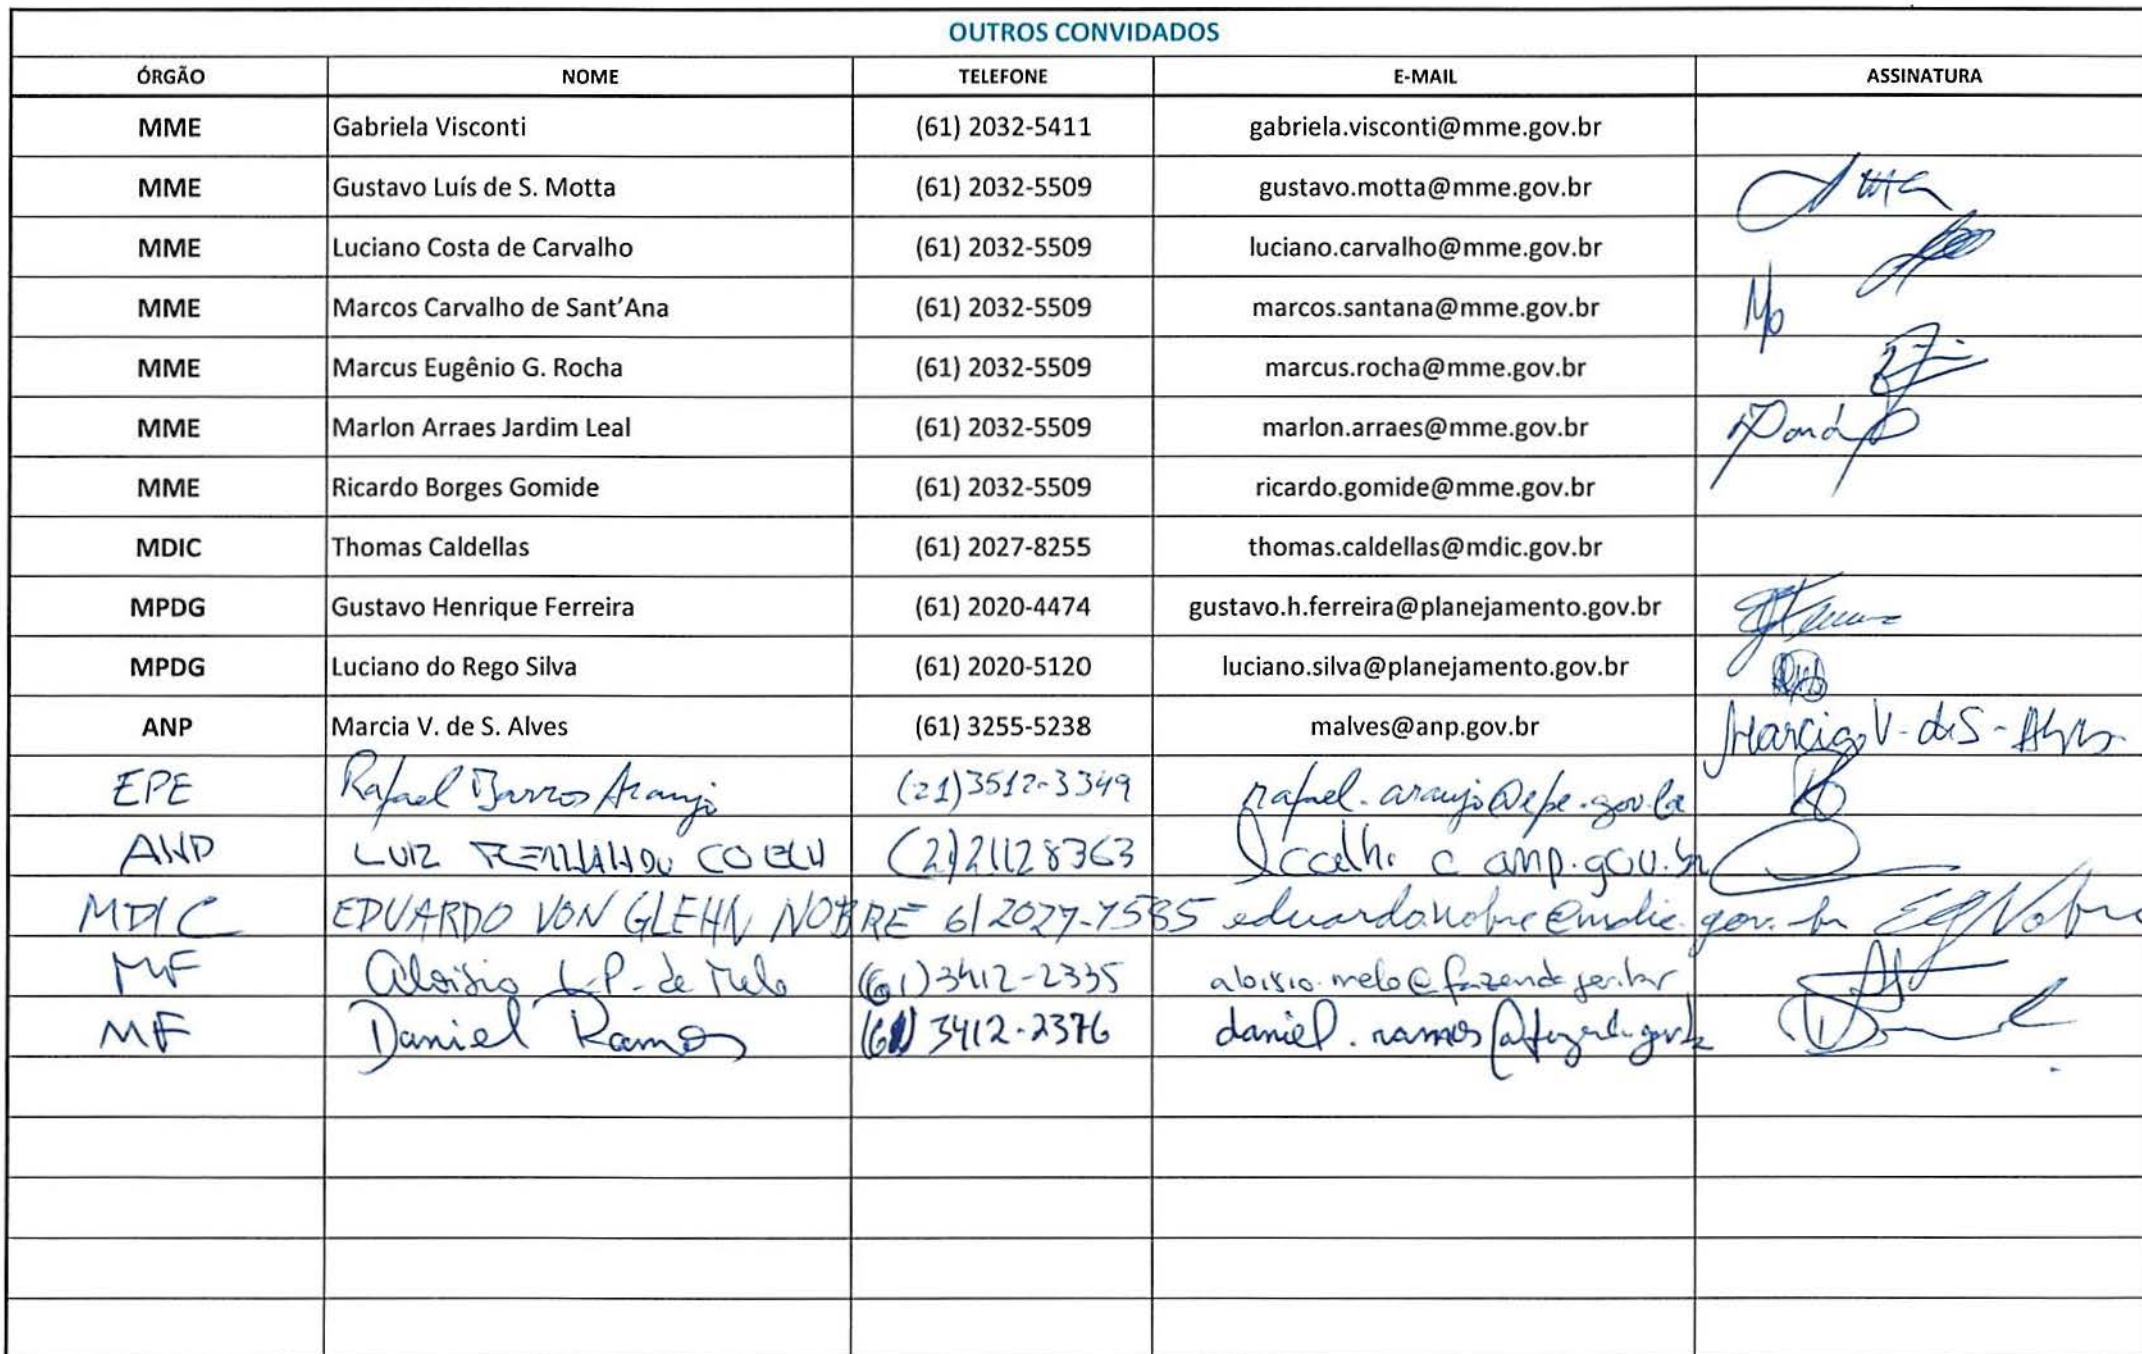 OUTROS CONVIDADOS
ÓRGÃO NOME TELEFONE E-MAIL ASSINATURA
MME Gabriela Visconti (61) 2032-5411 gabriela.visconti@mme.gov.br
MME Gustavo Luís de S. Motta (61) 2032-5509 gustavo.motta@mme.gov.br
MME Luciano Costa de Carvalho (61) 2032-5509 luciano.carvalho@mme.gov.br
MME Marcos Carvalho de Sant'Ana (61) 2032-5509 marcos.santana@mme.gov.br
MME Marcus Eugênio G. Rocha (61) 2032-5509 marcus.rocha@mme.gov.br
MME Marlon Arraes Jardim Leal (61) 2032-5509 marlon.arraes@mme.gov.br
MME Ricardo Borges Gomide (61) 2032-5509 ricardo.gomide@mme.gov.br
MDIC Thomas Caldellas (61) 2027-8255 thomas.caldellas@mdic.gov.br
MPDG Gustavo Henrique Ferreira (61) 2020-4474 gustavo.h.ferreira@planejamento.gov.br
MPDG Luciano do Rego Silva (61) 2020-5120 luciano.silva@planejamento.gov.br
ANP Marcia V. de S. Alves (61) 3255-5238 malves@anp.gov.br Marcia V. de S. Alves
EPE Rafael Barros Araujo (21) 3512-3349 rafael.araujo@epe.gov.br
ANP LUIZ FERNANDO COELH (21) 21128363 lcoelho@anp.gov.br
MDIC EDUARDO VON GLEHN NOBRE 61 2027-7585 eduardo.nobre@mdic.gov.br EG Nobre
MF Aloisio L.P. de Melo (61) 3412-2335 aloisio.melo@fazenda.gov.br
MF Daniel Ramos (61) 3412-2376 daniel.ramos@fazenda.gov.br